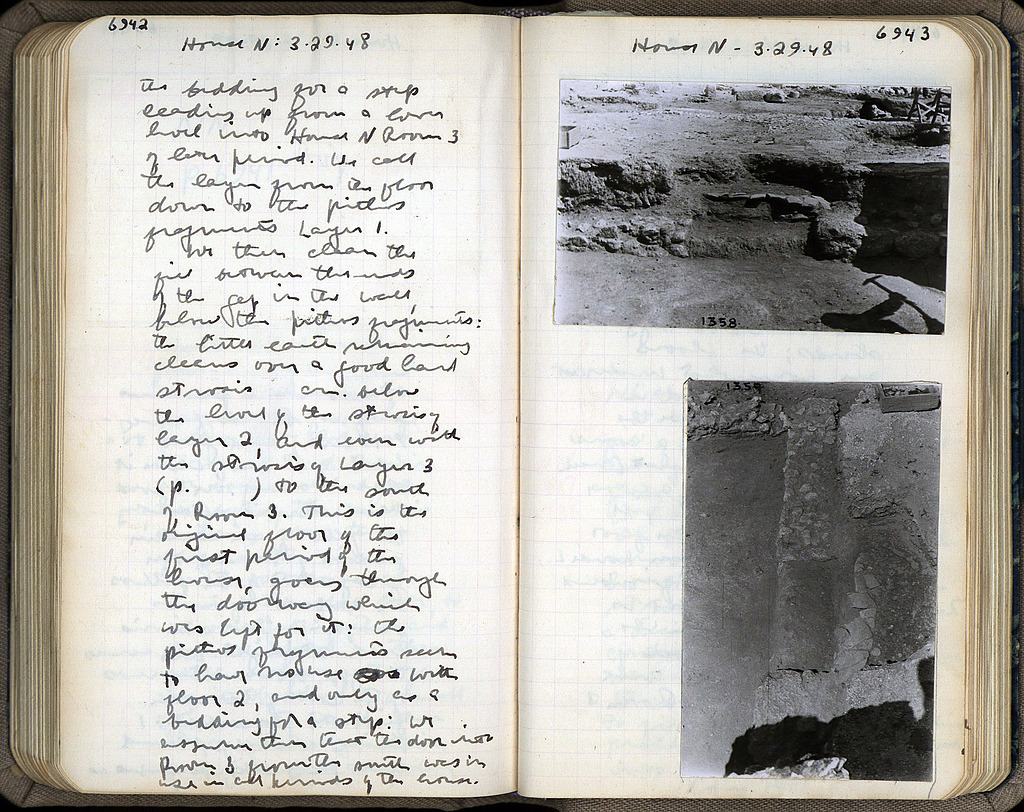 6942
House N: 3.29.48
the bedding for a step
leading up from a lower
level into House N Room 3
of later period. We call
the layer from the floor
down to the pithos
fragments Layer 1.
We then clean the
fill between the ends
of the gap in the wall,
below the pithos fragments:
the little earth remaining
cleans over a good hard
strosis cm. below
the level of the strosis of
layer 2, and even with
the strosis of Layer 3
(p. ) to the south
of Room 3. This is the
original floor of the
first period of the
house, goes through
the doorway which
was left for it: the
pithos fragments seem
to have no use with
floor 2, and only as a
bedding for a step: we
assume then that the door into
Room 3 from the south was in
use in all periods of the house.
6943
House N - 3.29.48
1358
1359